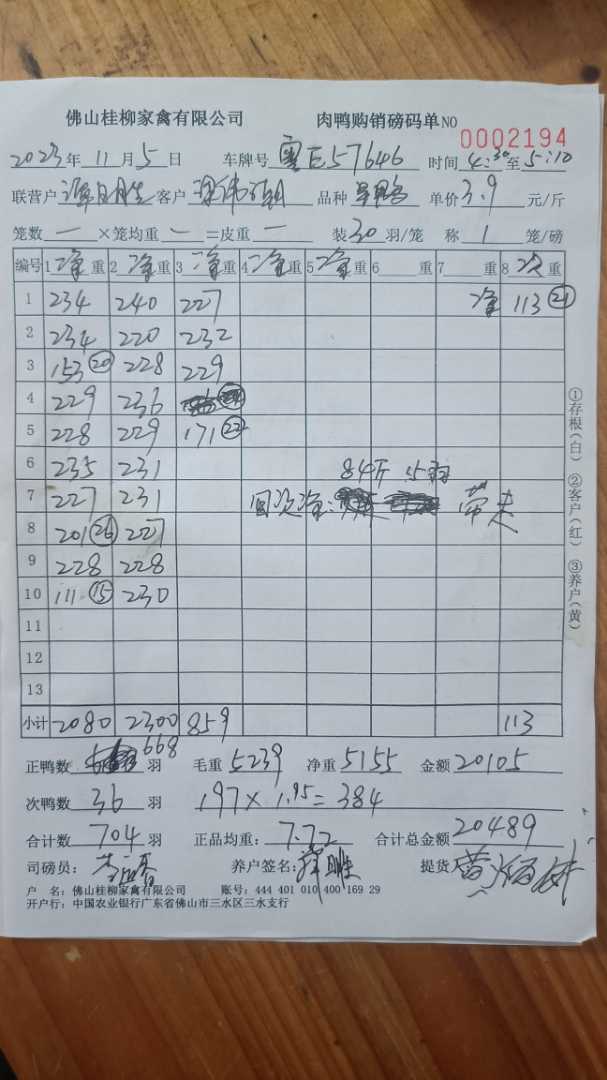 佛山桂柳家禽有限公司 肉鸭购销磅码单NO 0002194
2023年 11月 5日 车牌号 粤E57646 时间 4:30至5:10
联营户 客户 品种 单价 3.9 元/斤
笼数 一 ×笼均重 一 =皮重 一 装30羽/笼 称 1 笼/磅
编号 1净重 2净重 3净重 4净重 5净重 6 重 7 重 8次重
1 234 240 227 净 113 (21)
2 234 220 232
3 153 (20) 228 229
4 229 236
5 228 229 171 (22)
6 235 231 84斤 15羽
7 227 231 回次净: 带走
8 201 (26) 227
9 228 228
10 111 (15) 230
11
12
13
小计 2080 2300 859 113
正鸭数 668 羽 毛重 5239 净重 5155 金额 20105
次鸭数 36 羽 197×1.95=384
合计数 704 羽 正品均重: 7.72 合计总金额 20489
司磅员: 养户签名: 提货
户 名: 佛山桂柳家禽有限公司 账号: 444 401 010 400 169 29
开户行: 中国农业银行广东省佛山市三水区三水支行
①存根(白) ②客户(红) ③养户(黄)